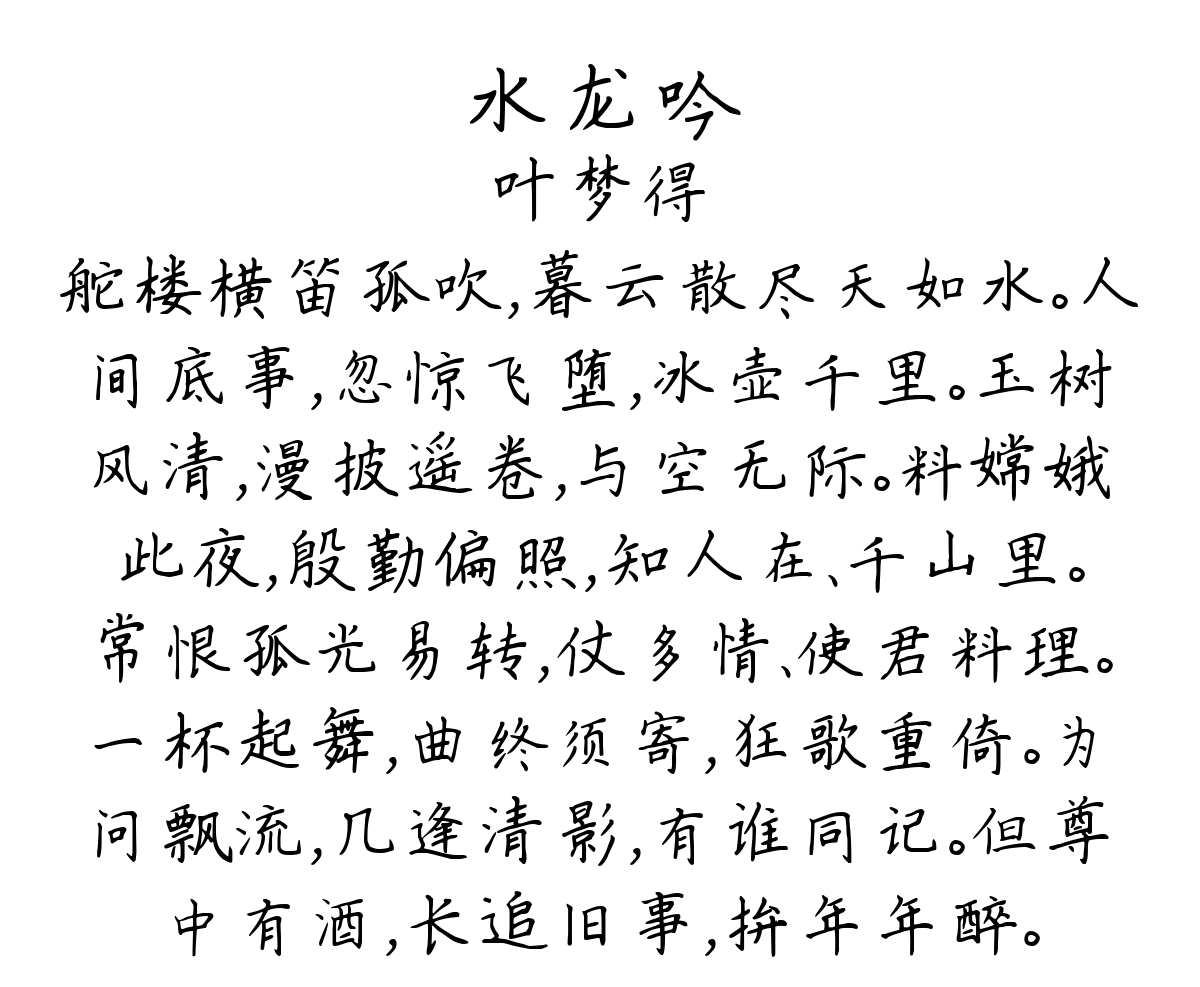 水龙吟
叶梦得
舵楼横笛孤吹,暮云散尽天如水。人
间底事,忽惊飞堕,冰壶千里。玉树
风清,漫披遥卷,与空无际。料嫦娥
此夜,殷勤偏照,知人在、千山里。
常恨孤光易转,仗多情、使君料理。
一杯起舞,曲终须寄,狂歌重倚。为
问飘流,几逢清影,有谁同记。但尊
中有酒,长追旧事,拚年年醉。